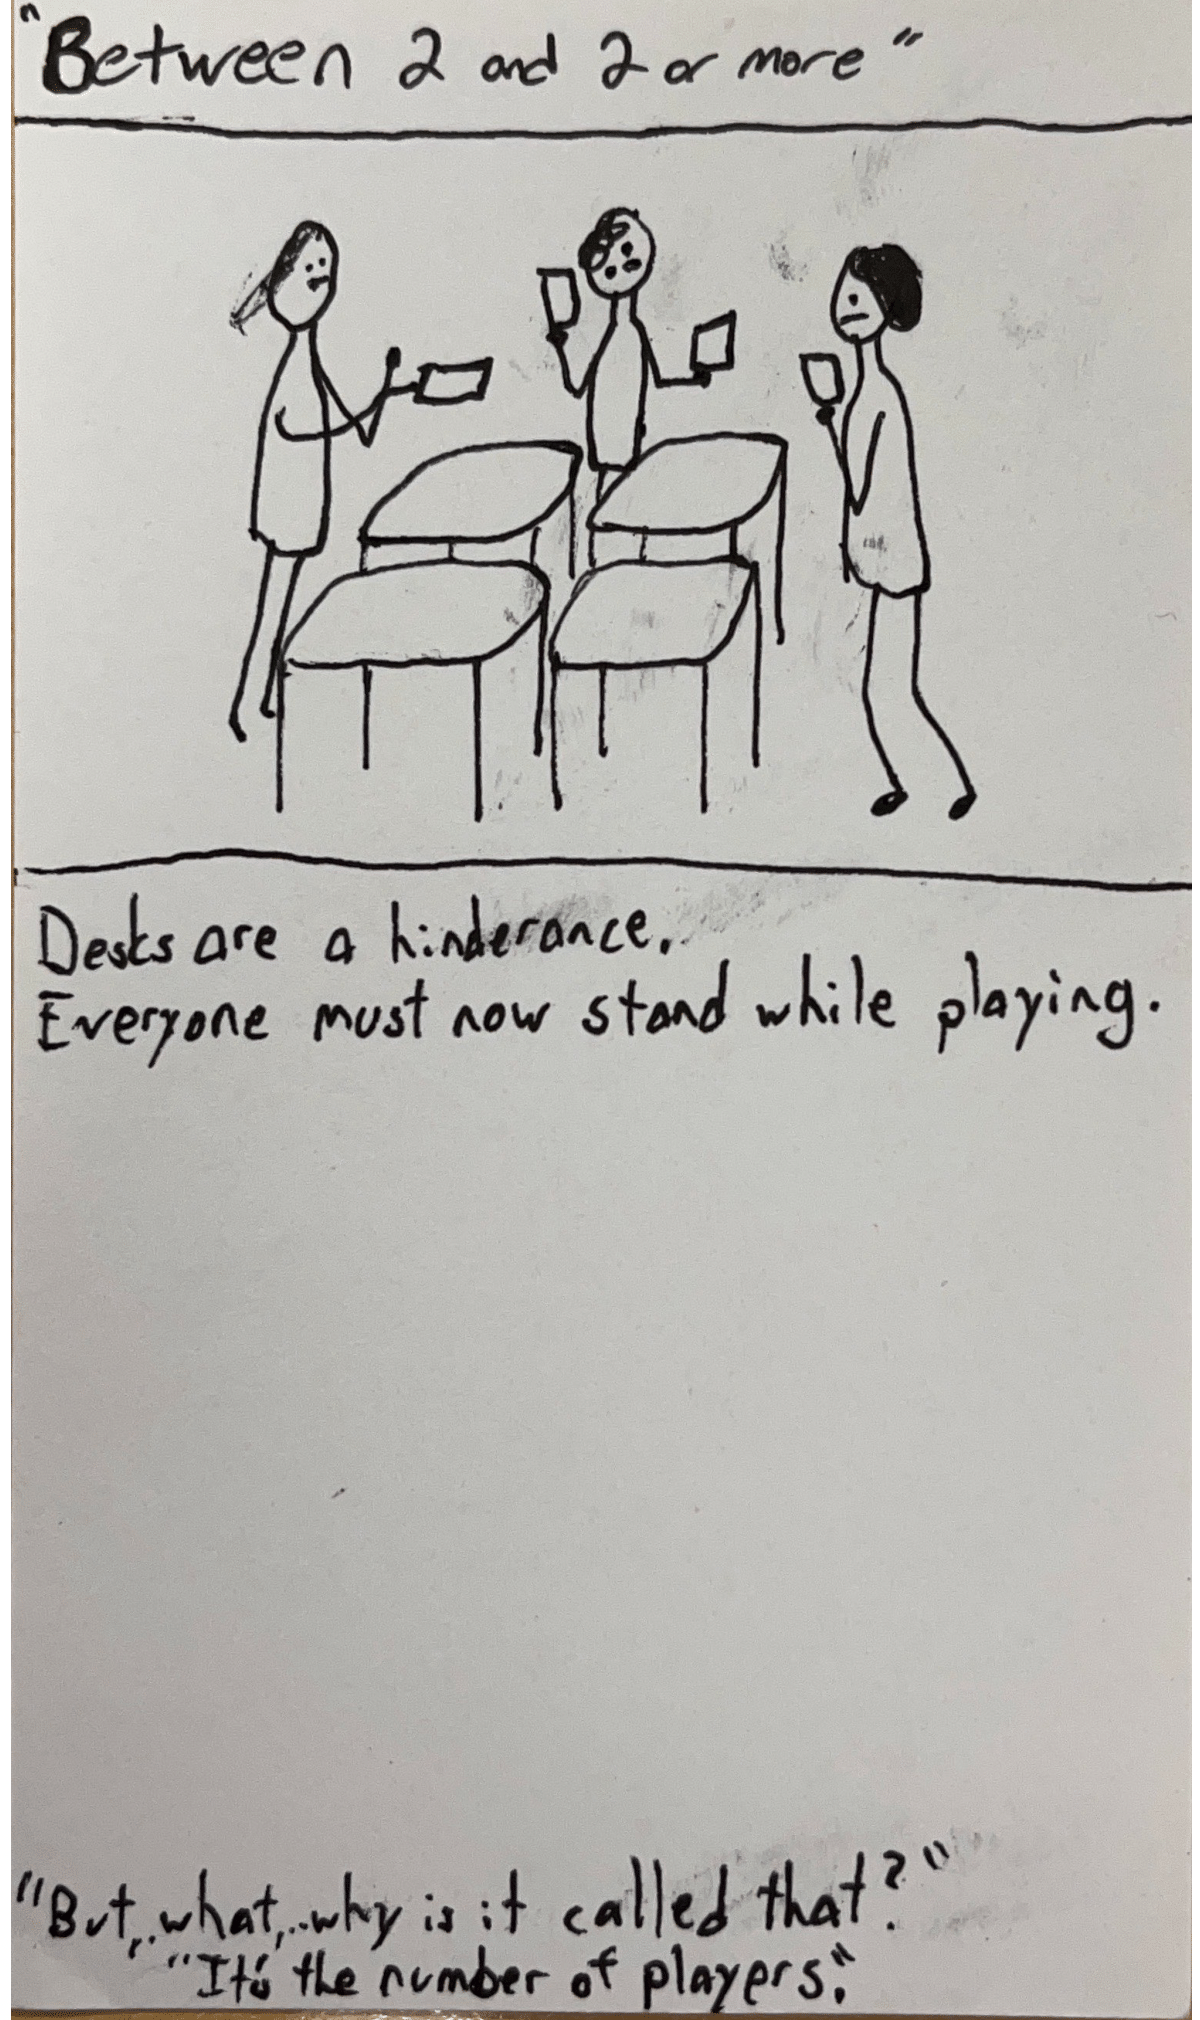 "Between 2 and 2 or more"
Desks are a hinderance.
Everyone must now stand while playing.
"But,..what,..why is it called that?"
"It's the number of players."